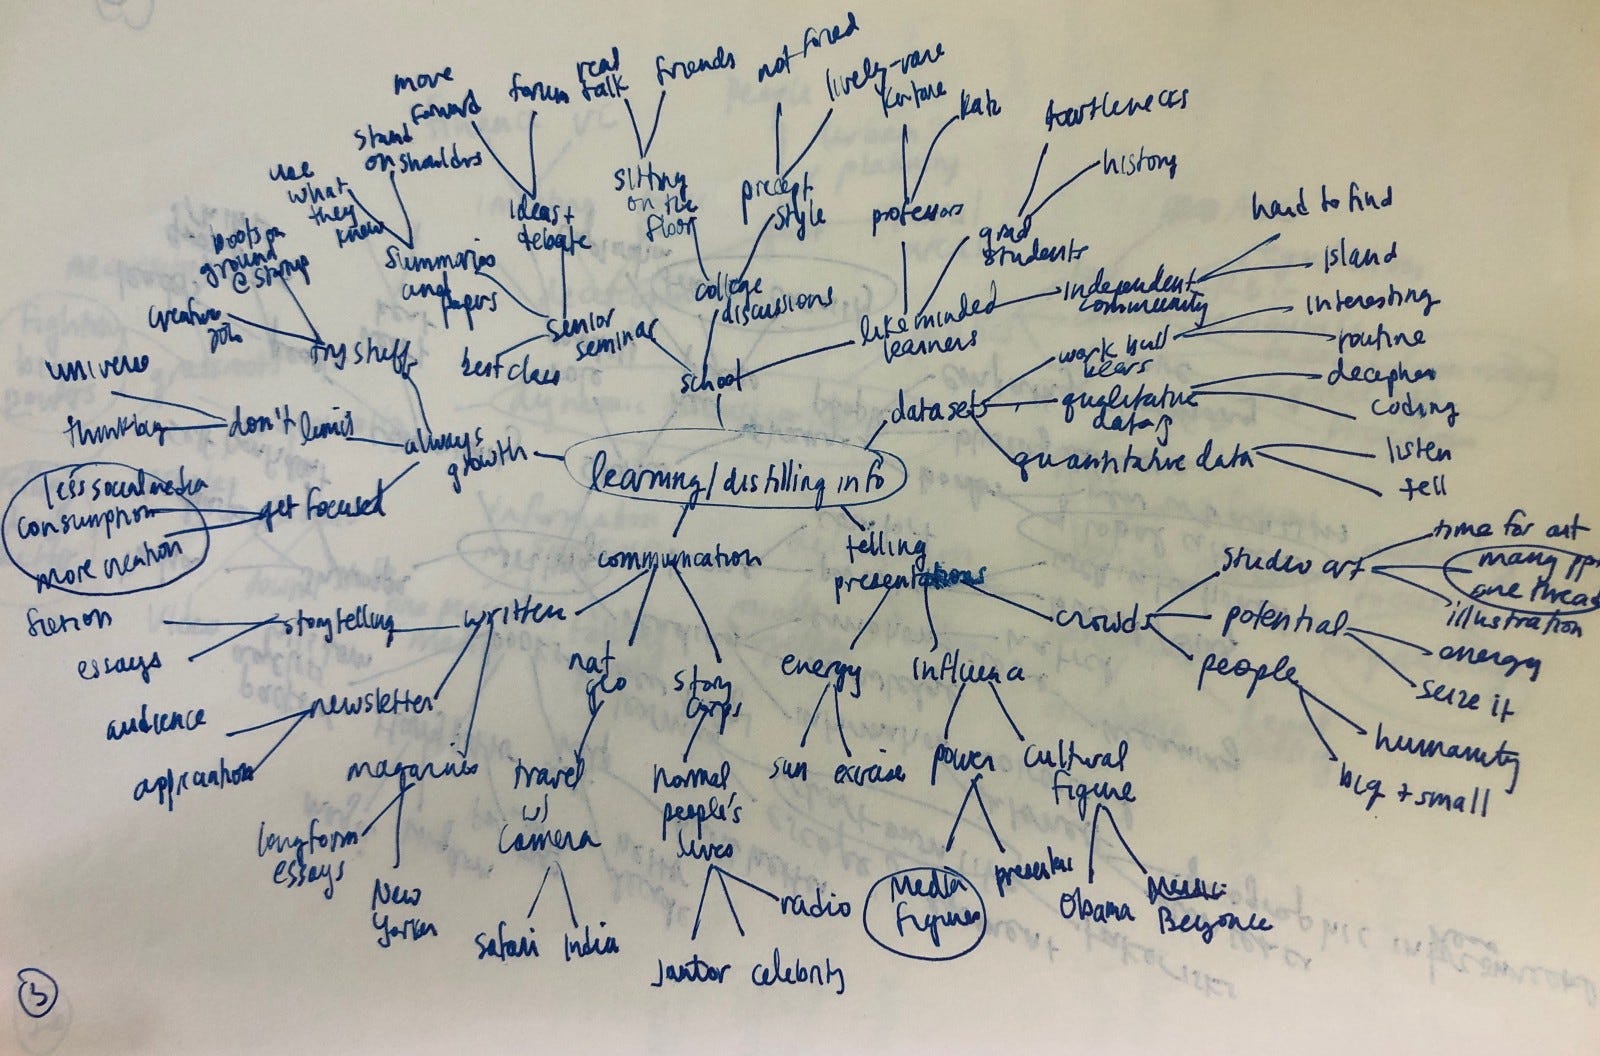 learning/distilling info
school
senior
seminar
best class
summaries
and
papers
use
what
they
know
stand
on shoulders
ideas +
debate
move
forward
forum
college
discussions
sitting
on the
floor
real
talk
friends
precept
style
not forced
lively-
like minded
learners
professors
Katz
grad
students
turtlenecks
history
independent
community
hard to find
island
datasets
work bull
bears
interesting
routine
qualitative
data
decipher
coding
quantitative data
listen
tell
telling
presentations
crowds
studio art
time for art
many
one thread
illustration
potential
energy
seize it
people
humanity
big + small
influence
power
media
figures
presenters
cultural
figure
Obama
Beyonce
energy
sun
exercise
communication
story
corps
normal
people's
lives
janitor
celebrity
radio
nat
geo
travel
w/
camera
safari
India
written
magazines
longform
essays
New
Yorker
newsletter
audience
application
storytelling
fiction
essays
always
growth
get focused
less social media
consumption
more creation
don't limit
universe
thinking
try stuff
creative
boots on
ground
@ startup
3